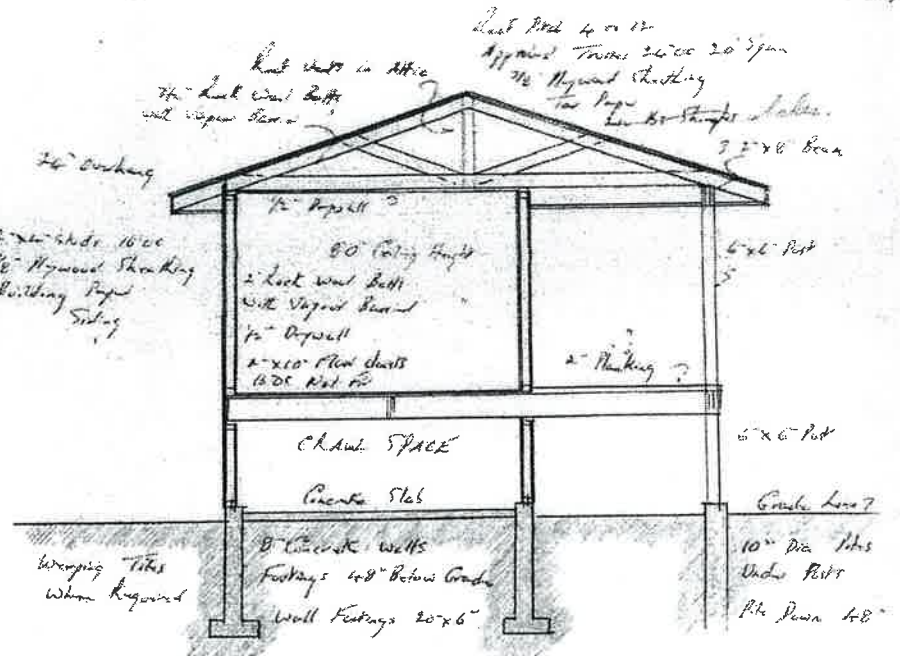 Roof Pitch 4 on 12
Approved Trusses 24" OC 20' Span
Plywood Sheathing
Tar Paper
Roof Vents in Attic
Rock Wool Batts
with Vapour Barrier
3 2"x8" Beam
24" Overhang
1/2" Drywall ?
2"x6" Studs 16" OC
Plywood Sheathing
Building Paper
Siding
8'0" Ceiling Height
Rock Wool Batts
with Vapour Barrier "
1/2" Drywall
2"x10" Floor Joists
6"x6" Post
2" Planking ?
CRAWL SPACE
6"x6" Post
Concrete Slab
Grade Line ?
8" Concrete Walls
Footings 48" Below Grade
Wall Footings 20"x6"
Weeping Tiles
Where Required
10" Dia Piles
Under Posts
Pile Down 48"